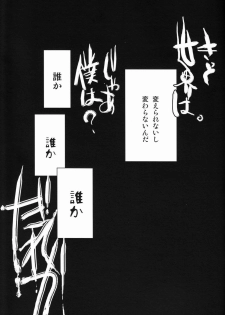 きっと
世界は。
変えられないし
変わらないんだ
じゃあ
僕は？
誰か
誰か
誰か
だれか